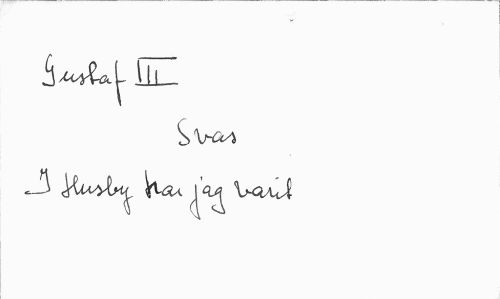 Gustaf III
Svas
I Husby har jag varit